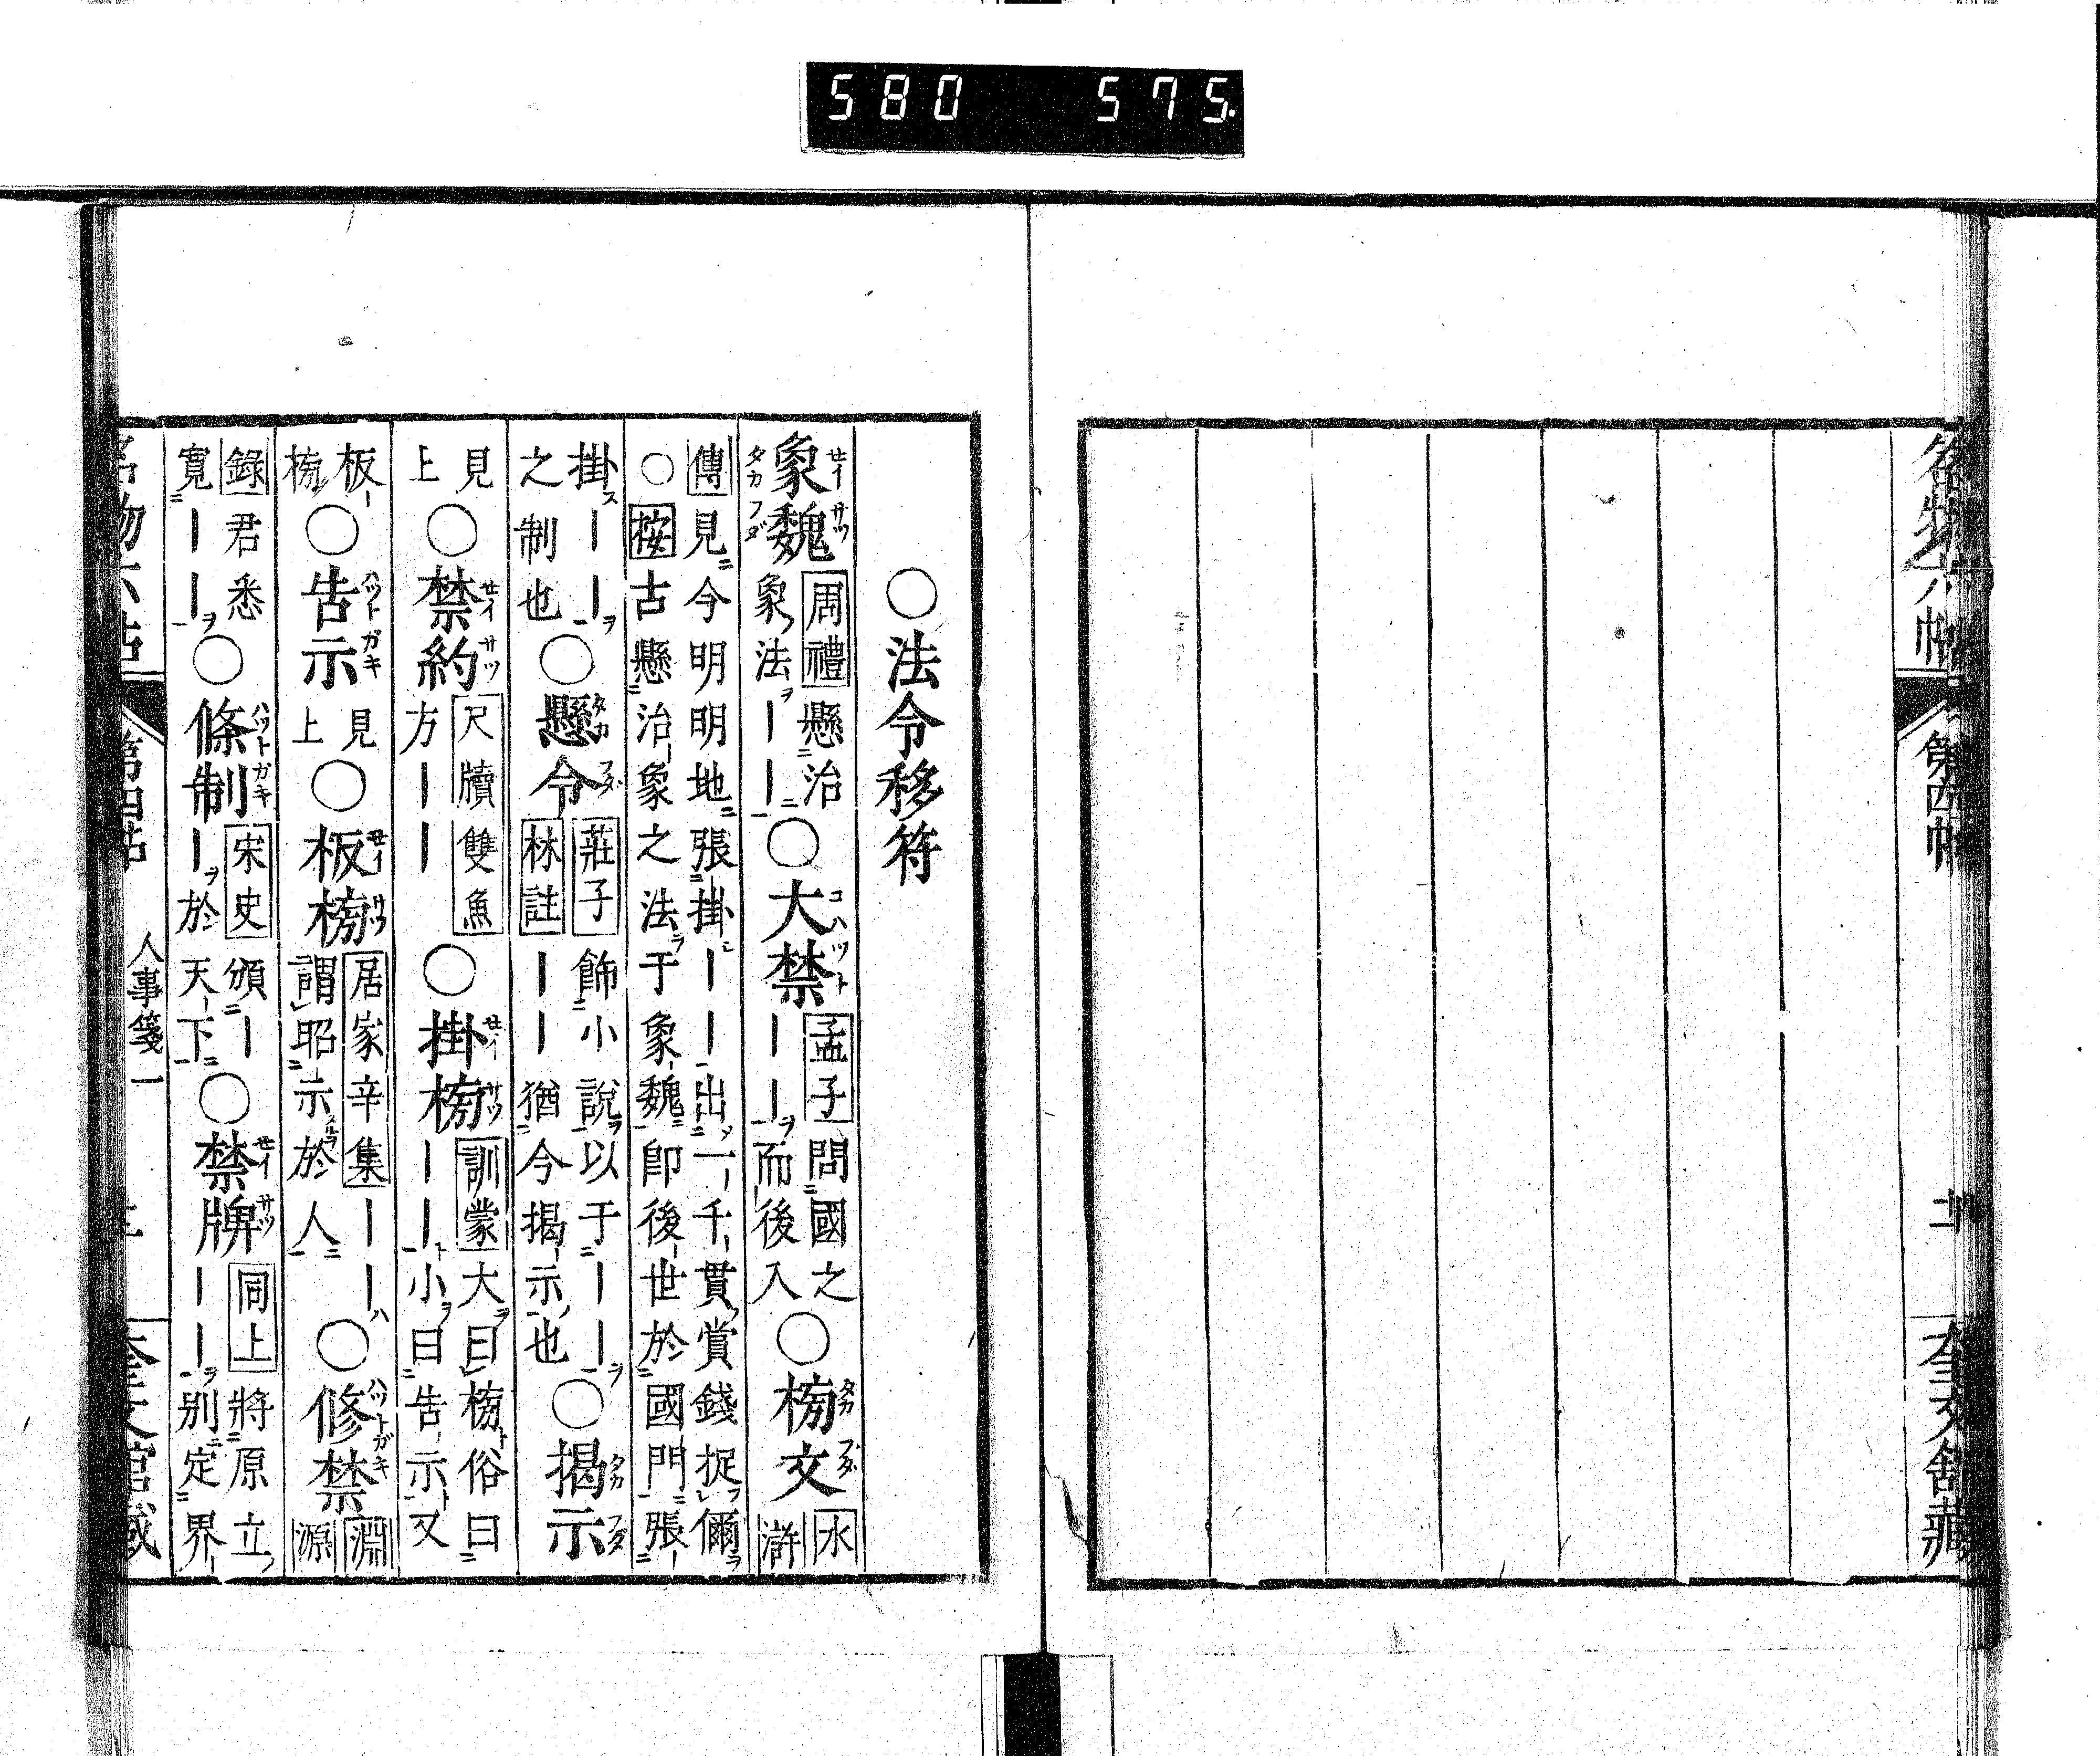 580 575.
名物六帖 第四帖 奎文舘藏
○法令移符
象魏周禮懸治象法〡〡○大禁孟子問國之〡〡而後入○榜文水滸
傳見今明明地張掛〡〡出一千貫賞錢捉儞○按古懸治象之法于象魏即後世於國門張
掛〡〡之制也○懸令莊子飾小說以于〡〡林註〡〡猶今揭示也○揭示
見上○禁約尺牘雙魚方〡〡○掛榜訓蒙大曰榜俗曰〡〡小曰告示又
板榜○告示見上○板榜居家辛集〡〡謂昭示於人○修禁淵源
錄君悉寬〡〡○條制宋史頒〡〡於天下○禁牌同上將原立〡〡別定界
名物六帖 第四帖 人事箋一 奎文館藏